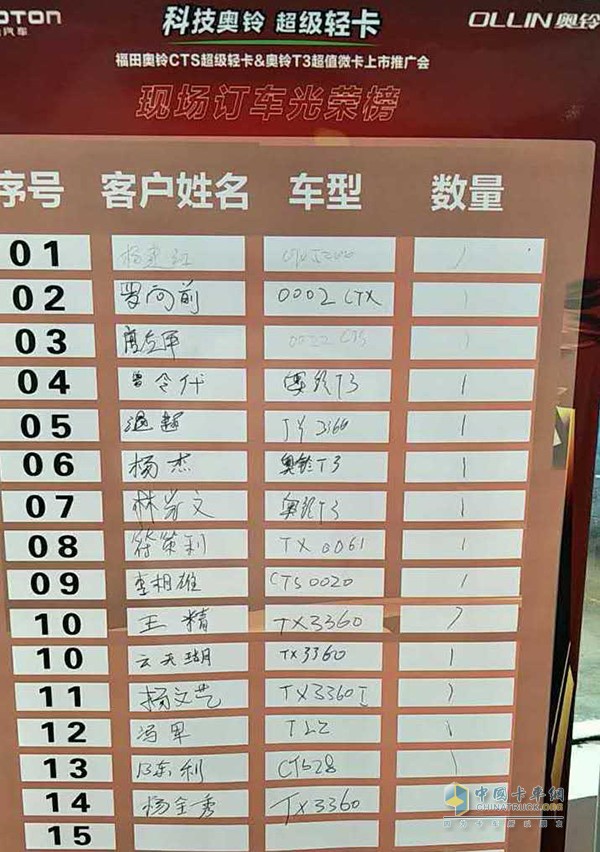 OTON
汽车
科技奥铃 超级轻卡
OLLIN奥铃
福田奥铃CTS超级轻卡&奥铃T3超值微卡上市推广会
现场订车光荣榜
序号 客户姓名 车型 数量
01 1
02 向前 0002 CTX 1
03 1
04 奥铃T3 1
05 1
06 杨杰 奥铃T3 1
07 林 文 奥铃T3 1
08 符策利 TX 0061 1
09 李相雄 CTS0020 1
10 王精 TX3360
10 云天瑚 TX3360 1
11 杨文艺 TX3360 1
12 冯 1
13 利 CTS28 1
14 杨金秀 TX3360
15
中国卡车网
CHINATRUCK.ORG